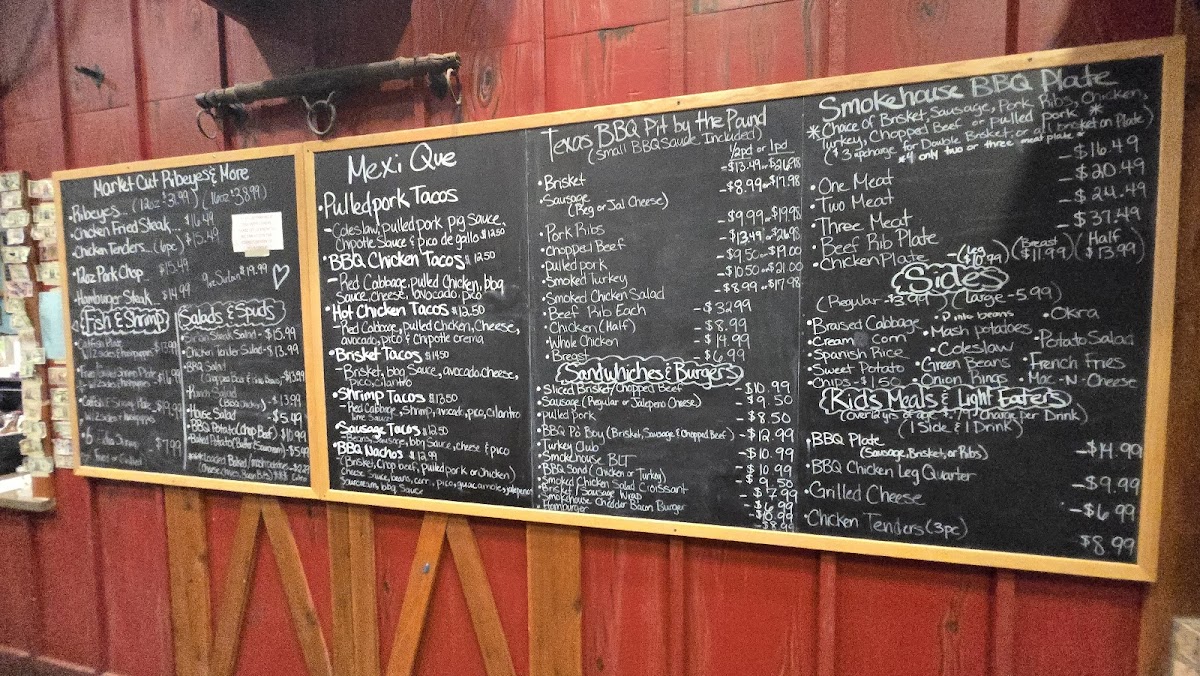 Market Cut Ribeyes & More
Ribeyes... (12oz $31.99) (16oz $38.99)
Chicken Fried Steak... $16.49
Chicken Tenders... (6pc) $15.49
12oz Pork Chop $15.49
9oz Sirloin $19.99
Hamburger Steak... $14.99
Fish & Shrimp
Catfish Plate
$7.99
Salads & Spuds
Sirloin Steak Salad - $15.99
Chicken Tender Salad - $13.99
BBQ Salad
(Chopped Beef & Pulled Pork) - $13.99
Ranch Salad
(BBQ Chicken) - $13.99
House Salad - $5.49
BBQ Potato (Chop Beef) $10.99
Baked Potato (Butter & Sourcream) - $5.49
Mexi Que
• Pulled pork Tacos
- Coleslaw, pulled pork, pig sauce,
Chipotle Sauce & pico de gallo $12.50
• BBQ Chicken Tacos $12.50
- Red Cabbage, pulled Chicken, bbq
Sauce, cheese, avocado, pico
• Hot Chicken Tacos $12.50
- Red Cabbage, pulled Chicken, Cheese,
avocado, pico & Chipotle crema
• Brisket Tacos $14.50
- Brisket, bbq Sauce, avocado, cheese,
pico, cilantro
• Shrimp Tacos $13.50
- Red Cabbage, shrimp, avocado, pico, cilantro
lime Sauce
• Sausage Tacos $12.50
- Beans, Sausage, bbq Sauce, cheese & pico
• BBQ Nachos $12.99
(Brisket, Chop beef, pulled pork or Chicken)
Cheese Sauce, beans, corn, pico, guacamole, jalapenos
Sourcream, bbq Sauce
Texas BBQ Pit by the Pound
(small BBQ Sauce Included)
1/2pd or 1pd
• Brisket - $13.49 or $26.98
• Sausage - $8.99 or $17.98
(Reg or Jal Cheese)
• Pork Ribs - $9.99 or $19.98
• Chopped Beef - $13.49 or $26.98
• Pulled pork - $9.50 or $19.00
• Smoked Turkey - $10.50 or $21.00
• Smoked Chicken Salad - $8.99 or $17.98
• Beef Rib Each - $32.99
• Chicken (Half) - $8.99
• Whole Chicken - $14.99
• Breast - $6.99
Sandwhiches & Burgers
• Sliced Brisket/Chopped Beef - $10.99
• Sausage (Regular or Jalapeno Cheese) - $9.50
• pulled Pork - $8.50
• BBQ Po Boy (Brisket, Sausage & Chopped Beef) - $12.99
• Turkey Club - $10.99
• Smokehouse BLT
• BBQ Sand (Chicken or Turkey) - $10.99
• Smoked Chicken Salad Croissant - $9.50
• Brisket/Sausage Wrap - $7.99
• Smokehouse Chedder Bacon Burger - $10.99
• Hamburger - $8.99
Smokehouse BBQ Plate
* Choice of Brisket, Sausage, Pork Ribs, Chicken,
Turkey, Chopped Beef or pulled pork *
($3 upcharge for Double Brisket, or all brisket on Plate)
*4 only two or three meat plate *
• One Meat - $16.49
• Two Meat - $20.49
• Three Meat - $24.49
• Beef Rib Plate - $37.49
• Chicken Plate - (Leg $10.99) (Breast $11.99) (Half $13.99)
Sides
(Regular - $3.99) (Large - 5.99)
• Braised Cabbage • Pinto beans • Okra
• Cream Corn • Mash potatoes • Potato Salad
• Spanish Rice • Coleslaw
• Sweet Potato • Green Beans • French Fries
• Chips - $1.50 • Onion Rings • Mac-N-Cheese
Kids Meals & Light Eaters
(1 Side & 1 Drink)
• BBQ Plate - $14.99
(Sausage, Brisket, or Ribs)
• BBQ Chicken Leg Quarter - $9.99
• Grilled Cheese - $6.99
• Chicken Tenders (3pc) $8.99